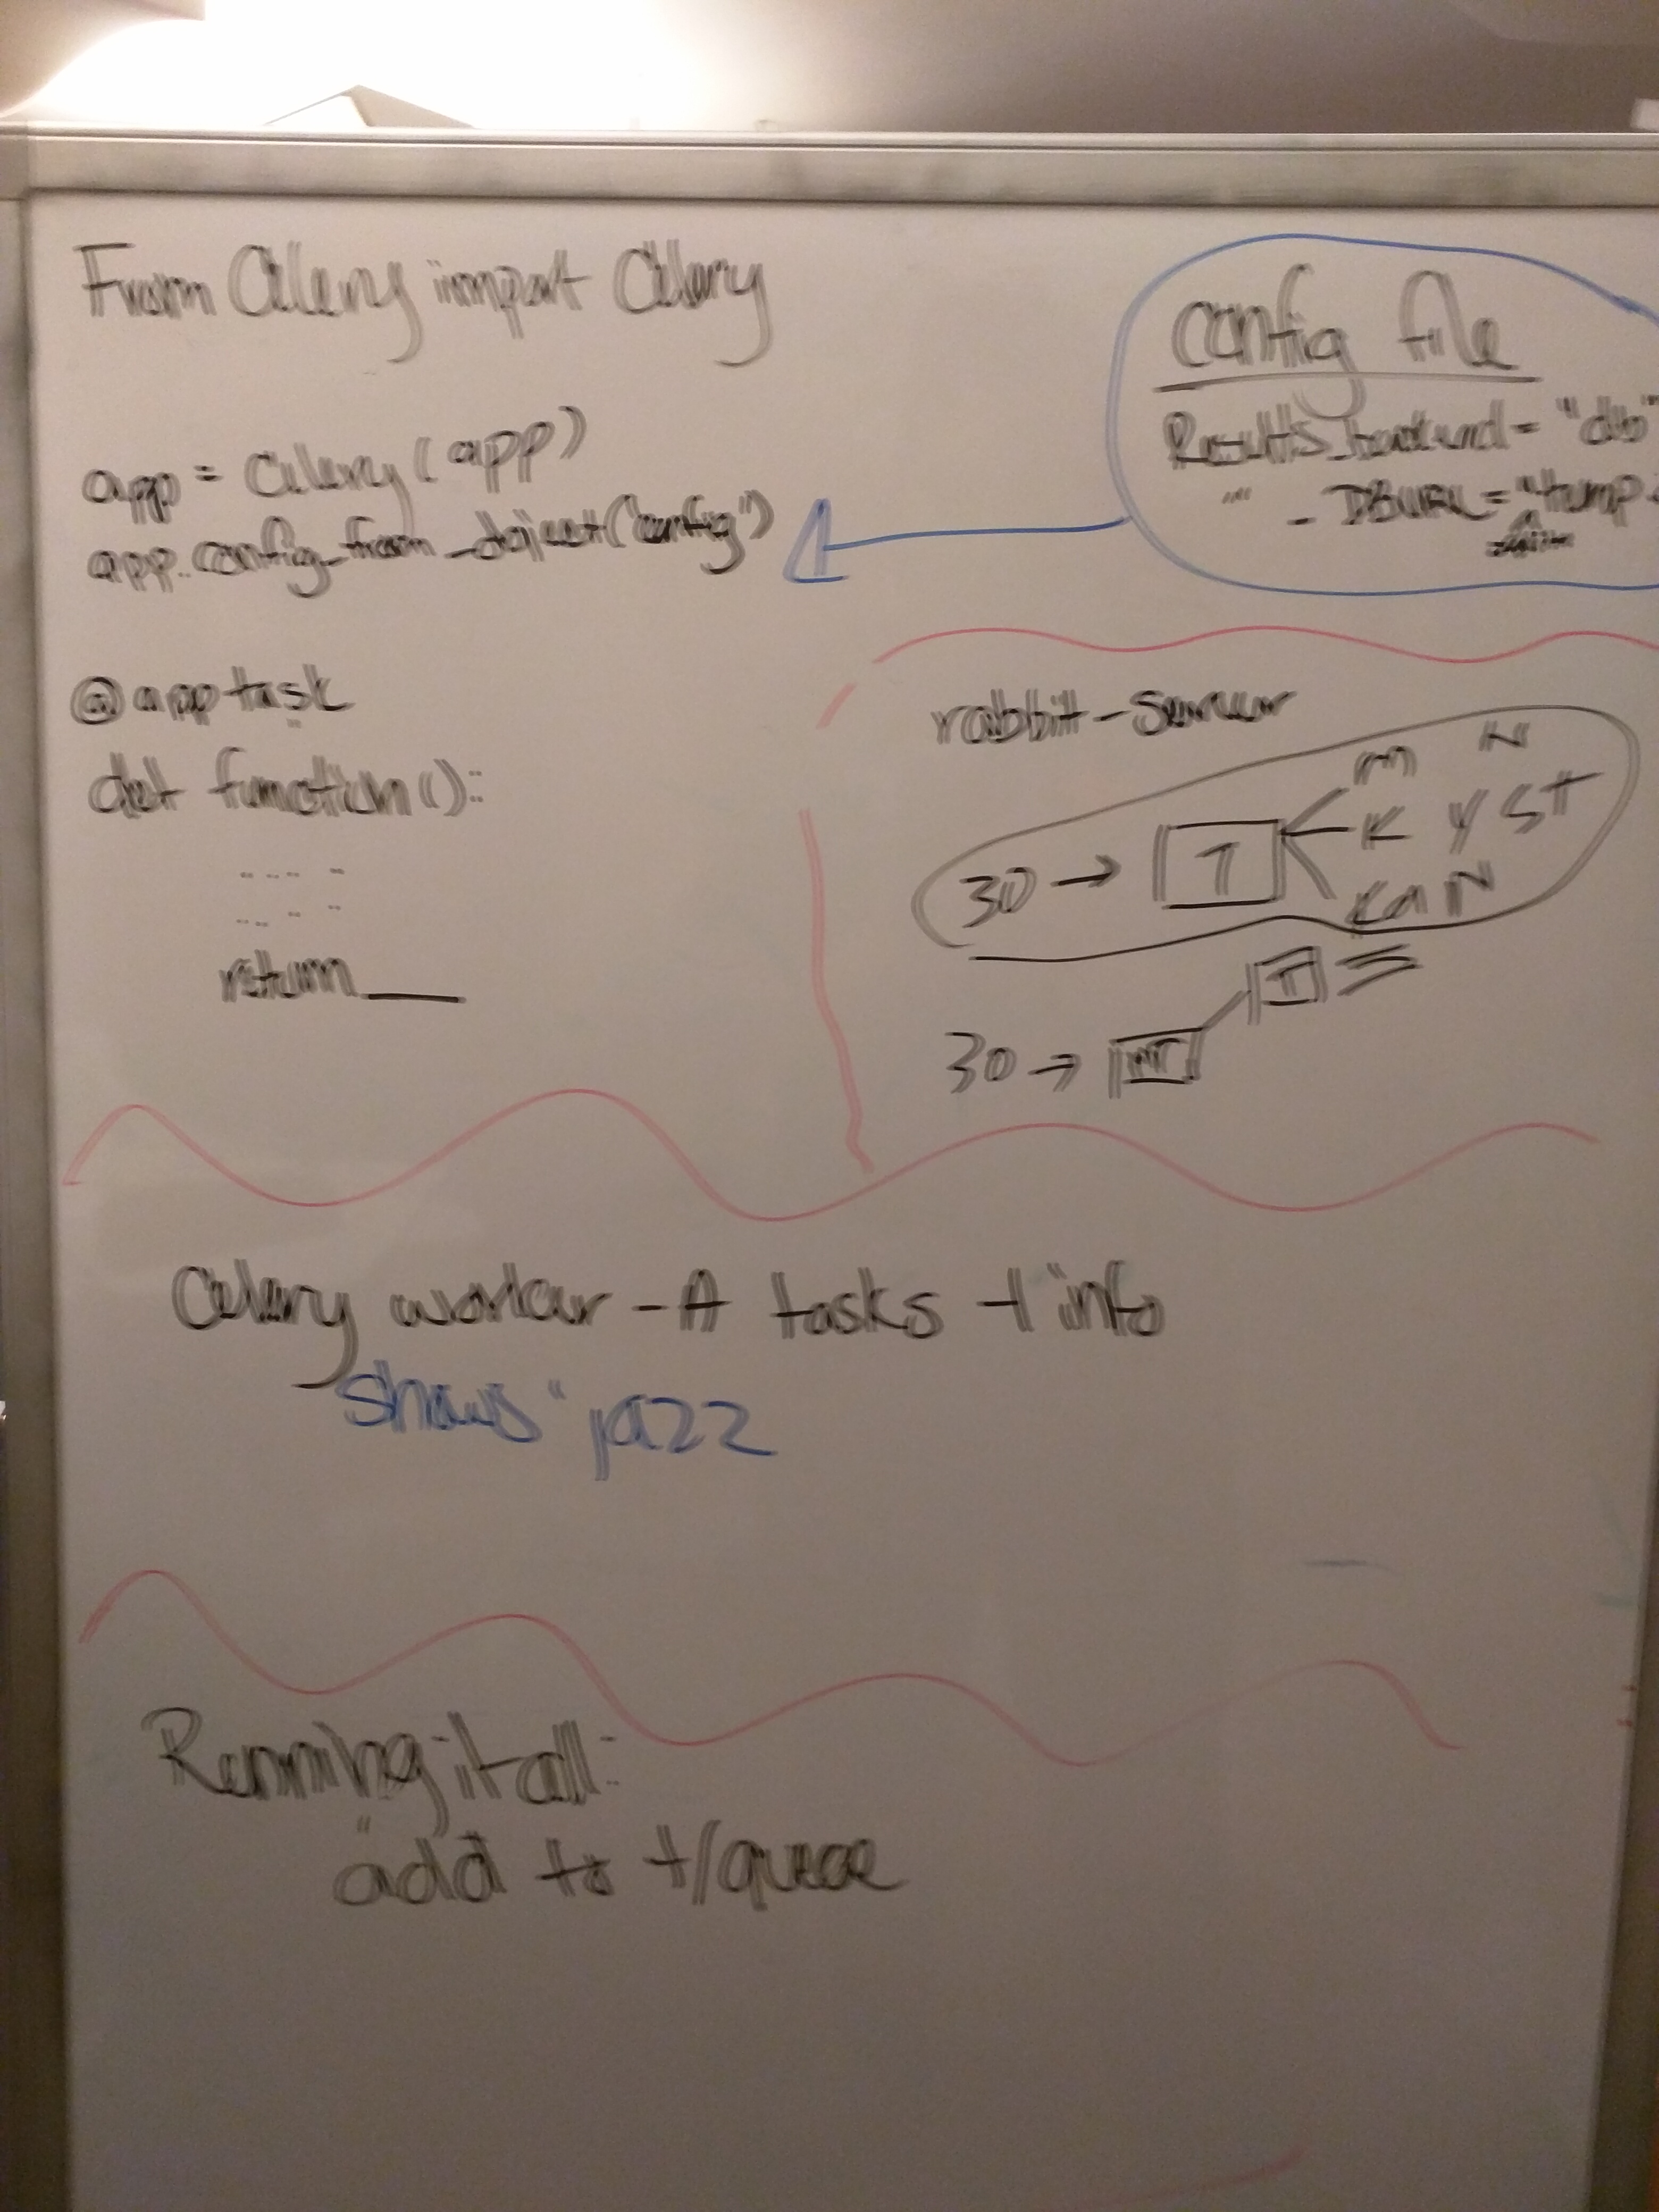 From Celery import Celery
app = Celery (app)
app.config_from_object('config')
@app task
def function():
.... -
... - -
return ___
config file
Results_backend = "db"
"" _ DBURL = "temp.
rabbit-server
30 → T
m N
K Y ST
Kan
T
30 →
Celery worker -A tasks -l info
shows jazz
Running it all:
add to t/queue